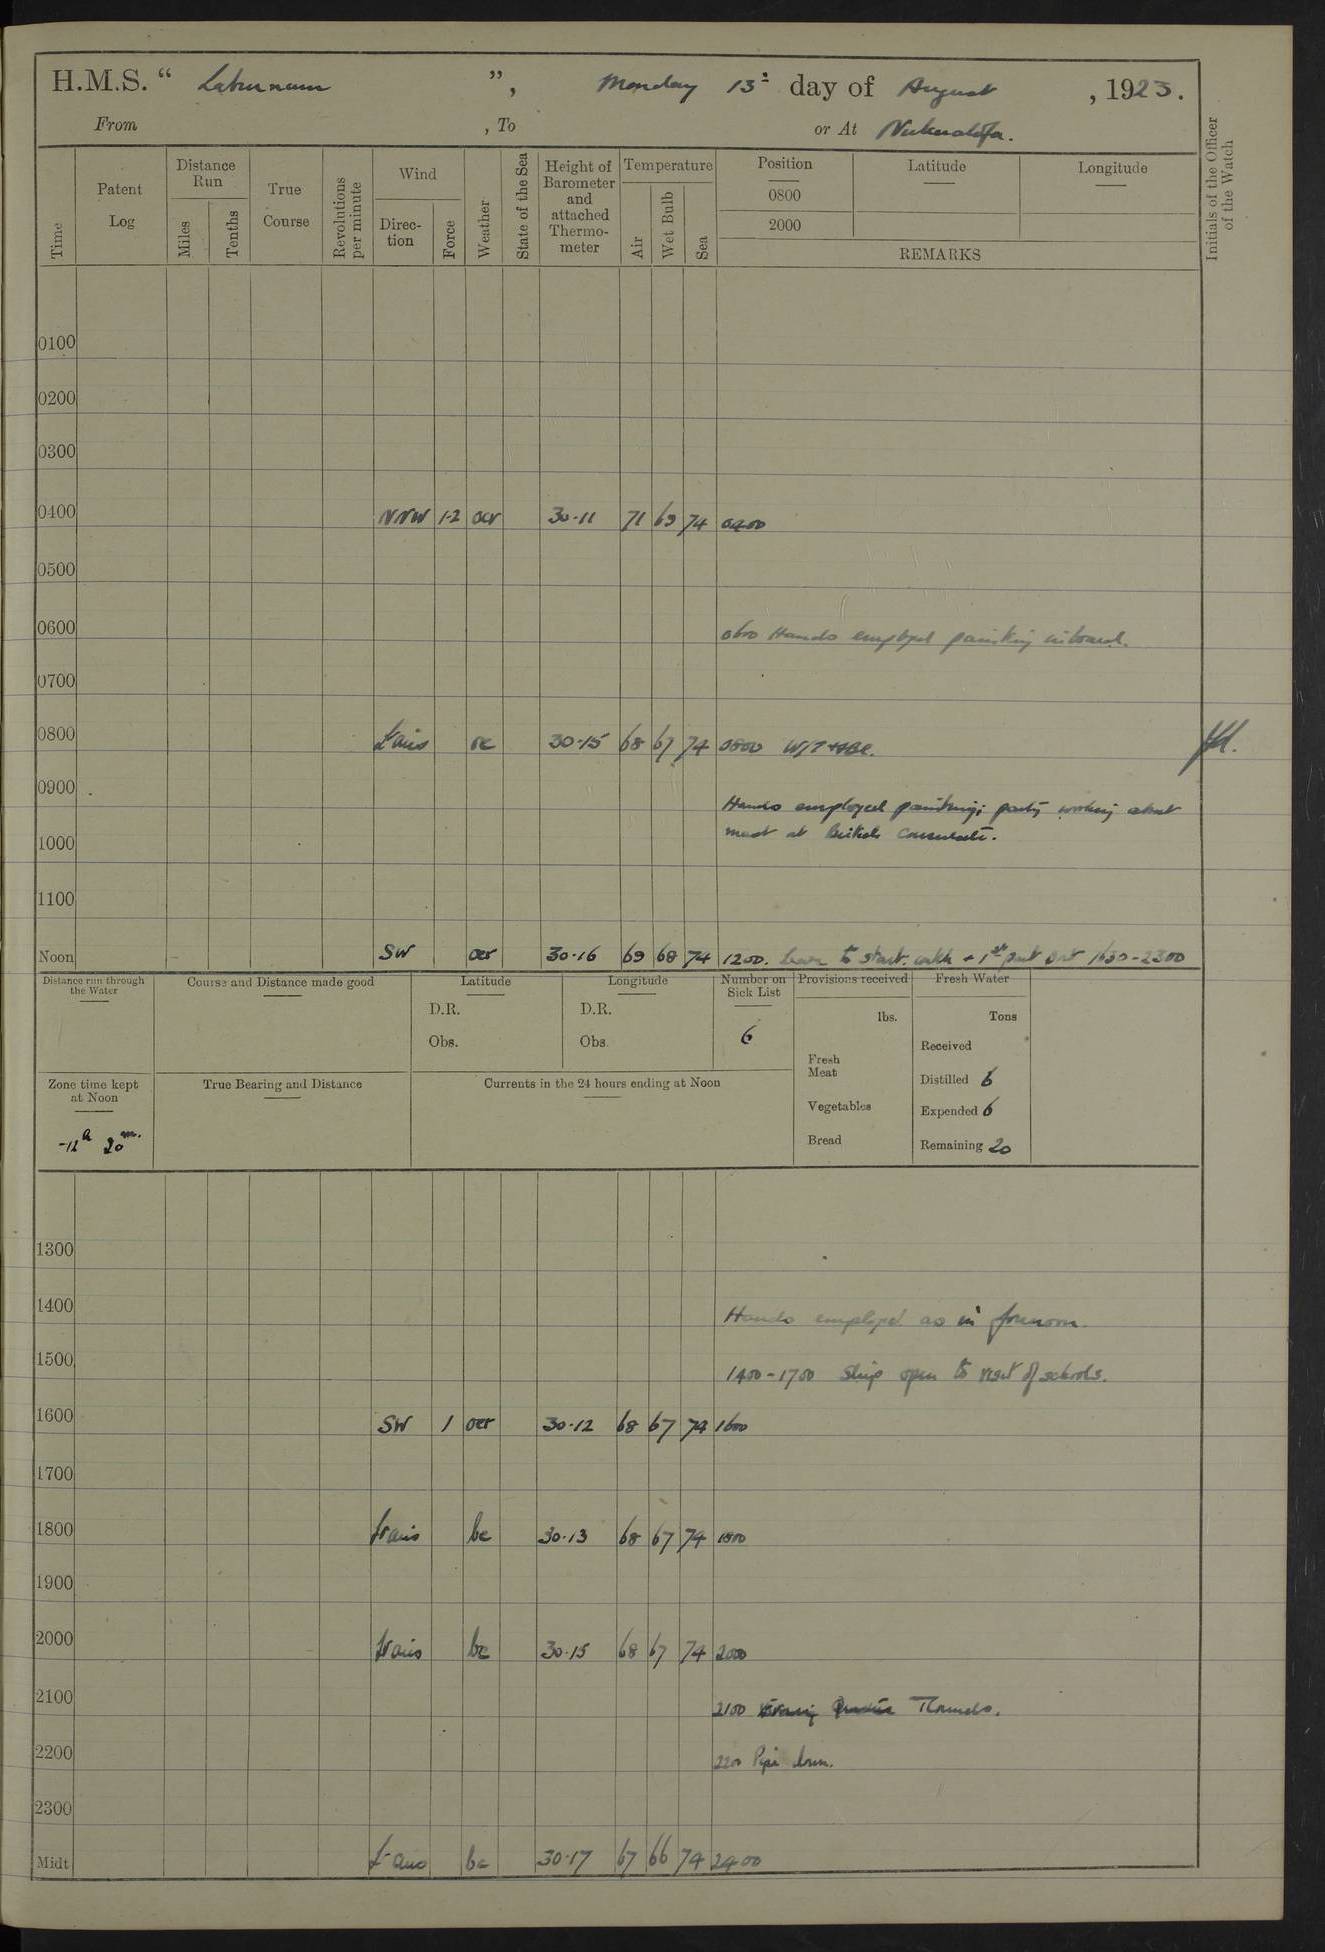 H.M.S. “ Laburnum ”, Monday 13th day of August , 1923.
From , To or At Nukualofa.
Time
Patent Log
Distance Run
Miles
Tenths
True Course
Revolutions per minute
Wind
Direc-tion
Force
Weather
State of the Sea
Height of Barometer and attached Thermo-meter
Temperature
Air
Wet Bulb
Sea
Position
0800
2000
Latitude
Longitude
REMARKS
Initials of the Officer of the Watch
0100
0200
0300
0400 NNW 1-2 ocr 30·11 71 69 74 0400
0500
0600 0600 Hands employed painting inboard.
0700
0800 L' airs oc 30·15 68 67 74 0800 W/T
0900
Hands employed painting; party working about
mast at British Consulate.
1000
1100
Noon SW ocr 30·16 69 68 74 1200. Leave to starb. watch + 1st part port 1630-2300
Distance run through the Water
Course and Distance made good
Latitude
D.R.
Obs.
Longitude
D.R.
Obs.
Number on Sick List
6
Provisions received
lbs.
Fresh Meat
Vegetables
Bread
Fresh Water
Tons
Received
Distilled 6
Expended 6
Remaining 20
Zone time kept at Noon
-12h 20m.
True Bearing and Distance
Currents in the 24 hours ending at Noon
1300
1400
Hands employed as in forenoon.
1500 1400-1700 Ship open to visit of schools.
1600 SW 1 ocr 30·12 68 67 74 1600
1700
1800 L' airs bc 30·13 68 67 74 1800
1900
2000 L' airs bc 30·15 68 67 74 2000
2100 2100 Rounds.
2200 2200 Pipe down.
2300
Midt L' airs bc 30·17 67 66 74 2400